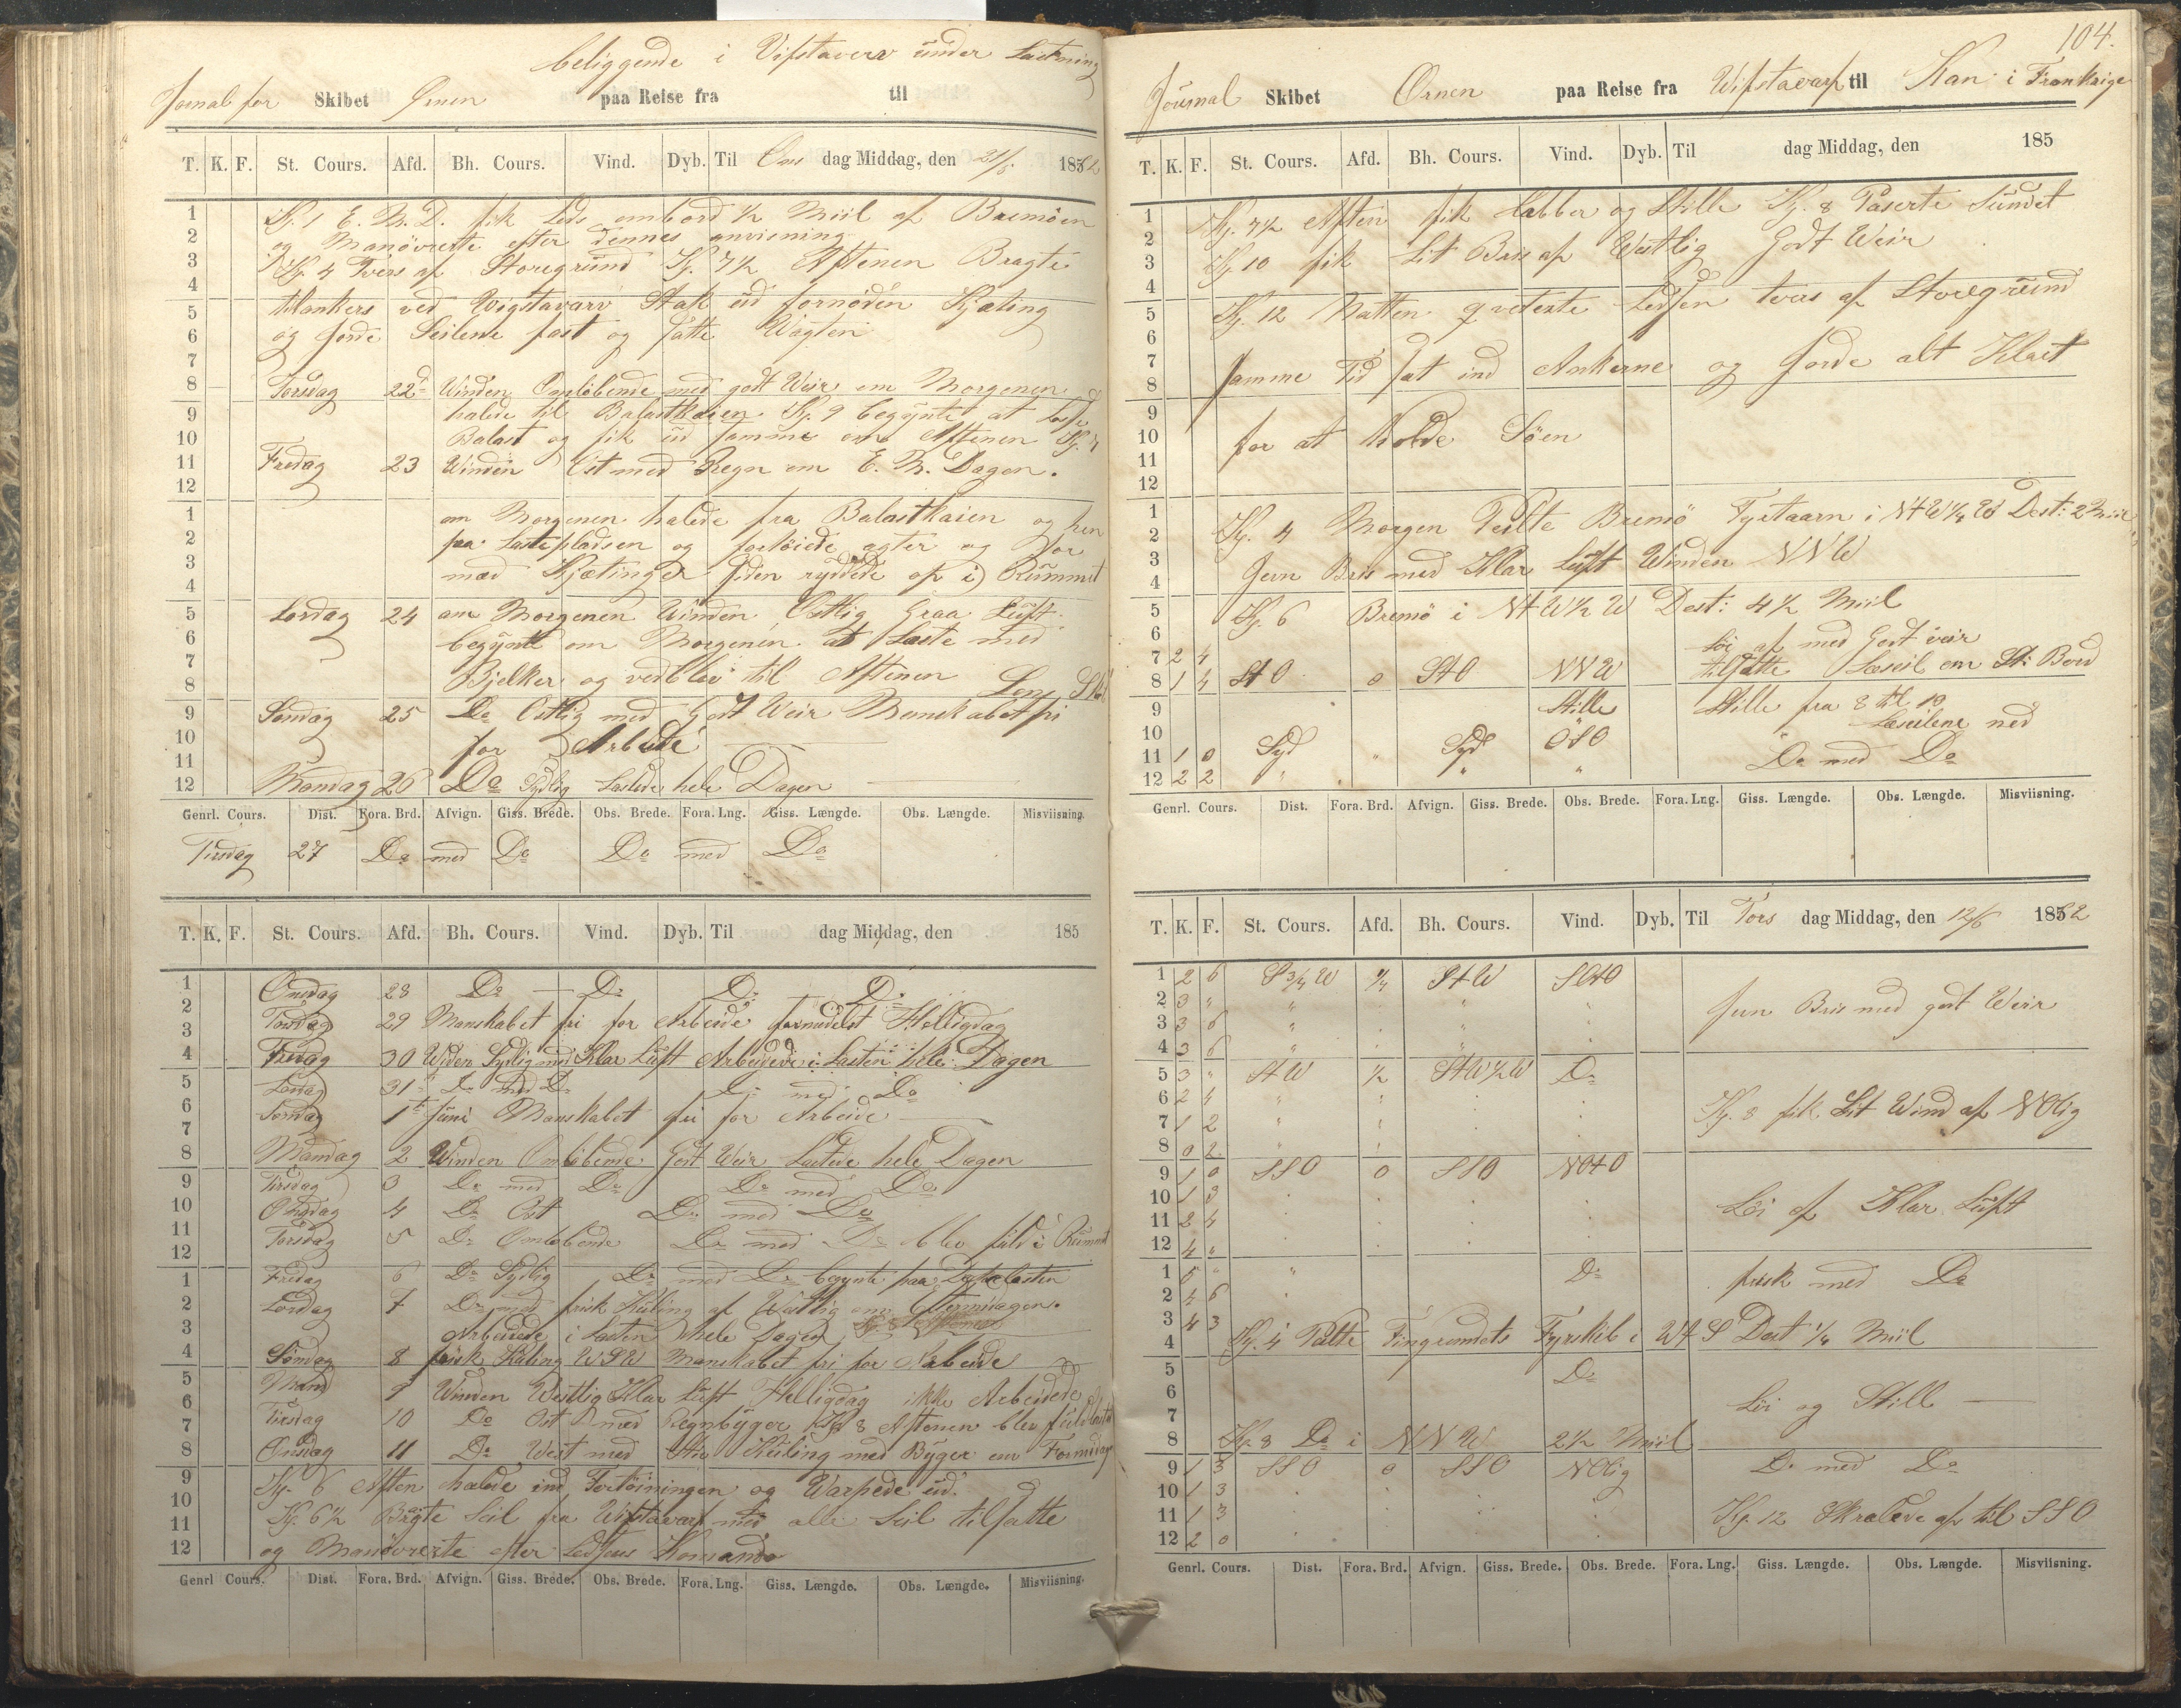 beliggende i Vifstaverv under Lastning
Jornal for Skibet Ørnen paa Reise fra til
T. K. F. St. Cours. Afd. Bh. Cours. Vind. Dyb. Til Ons dag Middag, den 21/5 1862
1 Kj. 1 E. M. D. fik Lods ombord 1/2 Miil af Bremöen
2 og Manövrerte efter dennes anvisning
3 Kj. 4 Tvers af Storegrund Kj. 7 1/2 Aftenen Bragte
4
5 tilankers ved Wigstavarv Stak ud fornöden Kjæting
6 og forde Seilene fast og satte Vagten
7
8 Torsdag 22d Winden Omlöbende med godt Veir om Morgenen
9 halede til Balastkaien Kj. 9 begynte at losse
10 Balast og fik ud samme om Aftenen Kj. 7
11 Fredag 23 Winden Ost med Regn om E. M. Dagen.
12
1 om Morgenen halede fra Balastkaien og hen
2 paa Lastepladsen og fortöiede agter og for
3 med Kjætinger siden ryddede op i Rummet
4
5 Lördag 24 om Morgenen Winden Ostlig Graa Luft
6 begynte om Morgenen at Laste med
7 Bjelker og vedblev til Aftenen
8
9 Söndag 25 Do Ostlig med Godt Veir Manskabet fri
10 for Arbeide
11
12 Mandag 26 Do Sydlig Lastede hele Dagen
Genrl. Cours. Dist. Fora. Brd. Afvign. Giss. Brede. Obs. Brede. Fora. Lng. Giss. Længde. Obs. Længde. Misviisning.
Tirsdag 27 Do med Do Do med Do
T. K. F. St. Cours. Afd. Bh. Cours. Vind. Dyb. Til dag Middag, den 185
1 Onsdag 28 Do Do Do Do
2 Torsdag 29 Manskabet fri for Arbeide formedelst Helligdag
3
4 Fredag 30 Winden Sydlig med Klar Luft Arbeidede i Lasten hele Dagen
5 Lördag 31 Do med Do Do med Do
6 Söndag 1t Juni Manskabet fri for Arbeide
7
8 Mandag 2 Winden Omlöbende Godt Veir Lastede hele Dagen
9 Tirsdag 3 Do med Do Do med Do
10 Onsdag 4 Do Ost Do med Do
11 Torsdag 5 Do Omlöbende Do med Do blev fuld i Rummet
12
1 Fredag 6 Do Sydlig Do med Do begynte paa Dækslasten
2 Lördag 7 Do med frisk Kuling af Westlig om Formidagen.
3 Arbeidede i Lasten hele Dagen
4 Söndag 8 frisk Kuling WSW Manskabet fri for Arbeide
5 Mand 9 Winden Westlig Klar Luft Helligdag ikke Arbeidede
6 Tirsdag 10 Do Ost med Regnbyger Kj 8 Aftenen blev fuld lastet
7
8 Onsdag 11 Do West med Stiv Kuling med Byger om Formidag
9 Kj. 6 Aften halede ind Fortöiningen og Warpede ud.
10 Kj. 6 1/2 Bragte Seil fra Wifstavarf med alle Seil tilsatte
11
12 og Manövrerte efter Lodsens Komando
Genrl Cours. Dist. Fora. Brd. Afvign. Giss. Brede. Obs. Brede. Fora. Lng. Giss. Længde. Obs. Længde. Misviisning.
104.
Journal Skibet Ørnen paa Reise fra Wifstavarf til Kan i Frankrige
T. K. F. St. Cours. Afd. Bh. Cours. Vind. Dyb. Til dag Middag, den 185
1 Kj. 7 1/2 Aften fik Labber og Stille Kj. 8 Paserte Sundet
2
3 Kj. 10 fik Lit Bris af Westlig Godt Weir
4
5 Kj. 12 Natten qviterte Lodsen tvers af Storegrund
6
7 samme Tid sat ind Ankerne og Gjorde alt Klart
8
9
10 for at Holde Söen
11
12
1
2 Kj. 4 Morgen Peilte Bremö Fyrtaarn i NtW 1/4 W Dest: 2 Miil
3 Jevn Bris med Klar Luft Winden NNW
4
5 Kj. 6 Bremö i NtW 1/2 W Dest: 4 1/2 Miil
6 Löi af med Godt veir
7 2 4 tilsatte Læseil om St: Bord
8 1 4 StO 0 StO NNW
9 Stille Stille fra 8 til 10
10 Læseilene ned
11 1 0 Syd " Syd OSO Do med Do
12 2 2 " " " "
Genrl. Cours. Dist. Fora. Brd. Afvign. Giss. Brede. Obs. Brede. Fora. Lng. Giss. Længde. Obs. Længde. Misviisning.
T. K. F. St. Cours. Afd. Bh. Cours. Vind. Dyb. Til Tors dag Middag, den 12/6 1862
1 2 6 S 3/4 W 1/4 StW SOtO
2 3 " " " " Jevn Bris med godt Weir
3 3 6 " " "
4 3 6 " " "
5 3 " StW 1/2 StW 1/2 W Do
6 2 4 " "
7 1 2 " " Kj. 8 fik Lit Wind af NOlig
8 0 2 "
9 1 0 SSO 0 SSO NOtO
10 1 3
11 2 4 Löi af Klar Luft
12 4 "
1 5 " " Do frisk med Do
2 4 6
3 4 3
4 Kj. 4 Peilte Fingrundets Fyrskib i WtS Dest 1/4 Miil
5 Do
6
7 Löi og Stille
8 Kj. 8 Do i NNW 2 1/2 Miil
9 1 3 SSO 0 SSO NOlig Do med Do
10 1 3
11 1 3 Kj. 12 Skralede af til SSO
12 2 0
Genrl. Cours. Dist. Fora. Brd. Afvign. Giss. Brede. Obs. Brede. Fora. Lng. Giss. Længde. Obs. Længde. Misviisning.